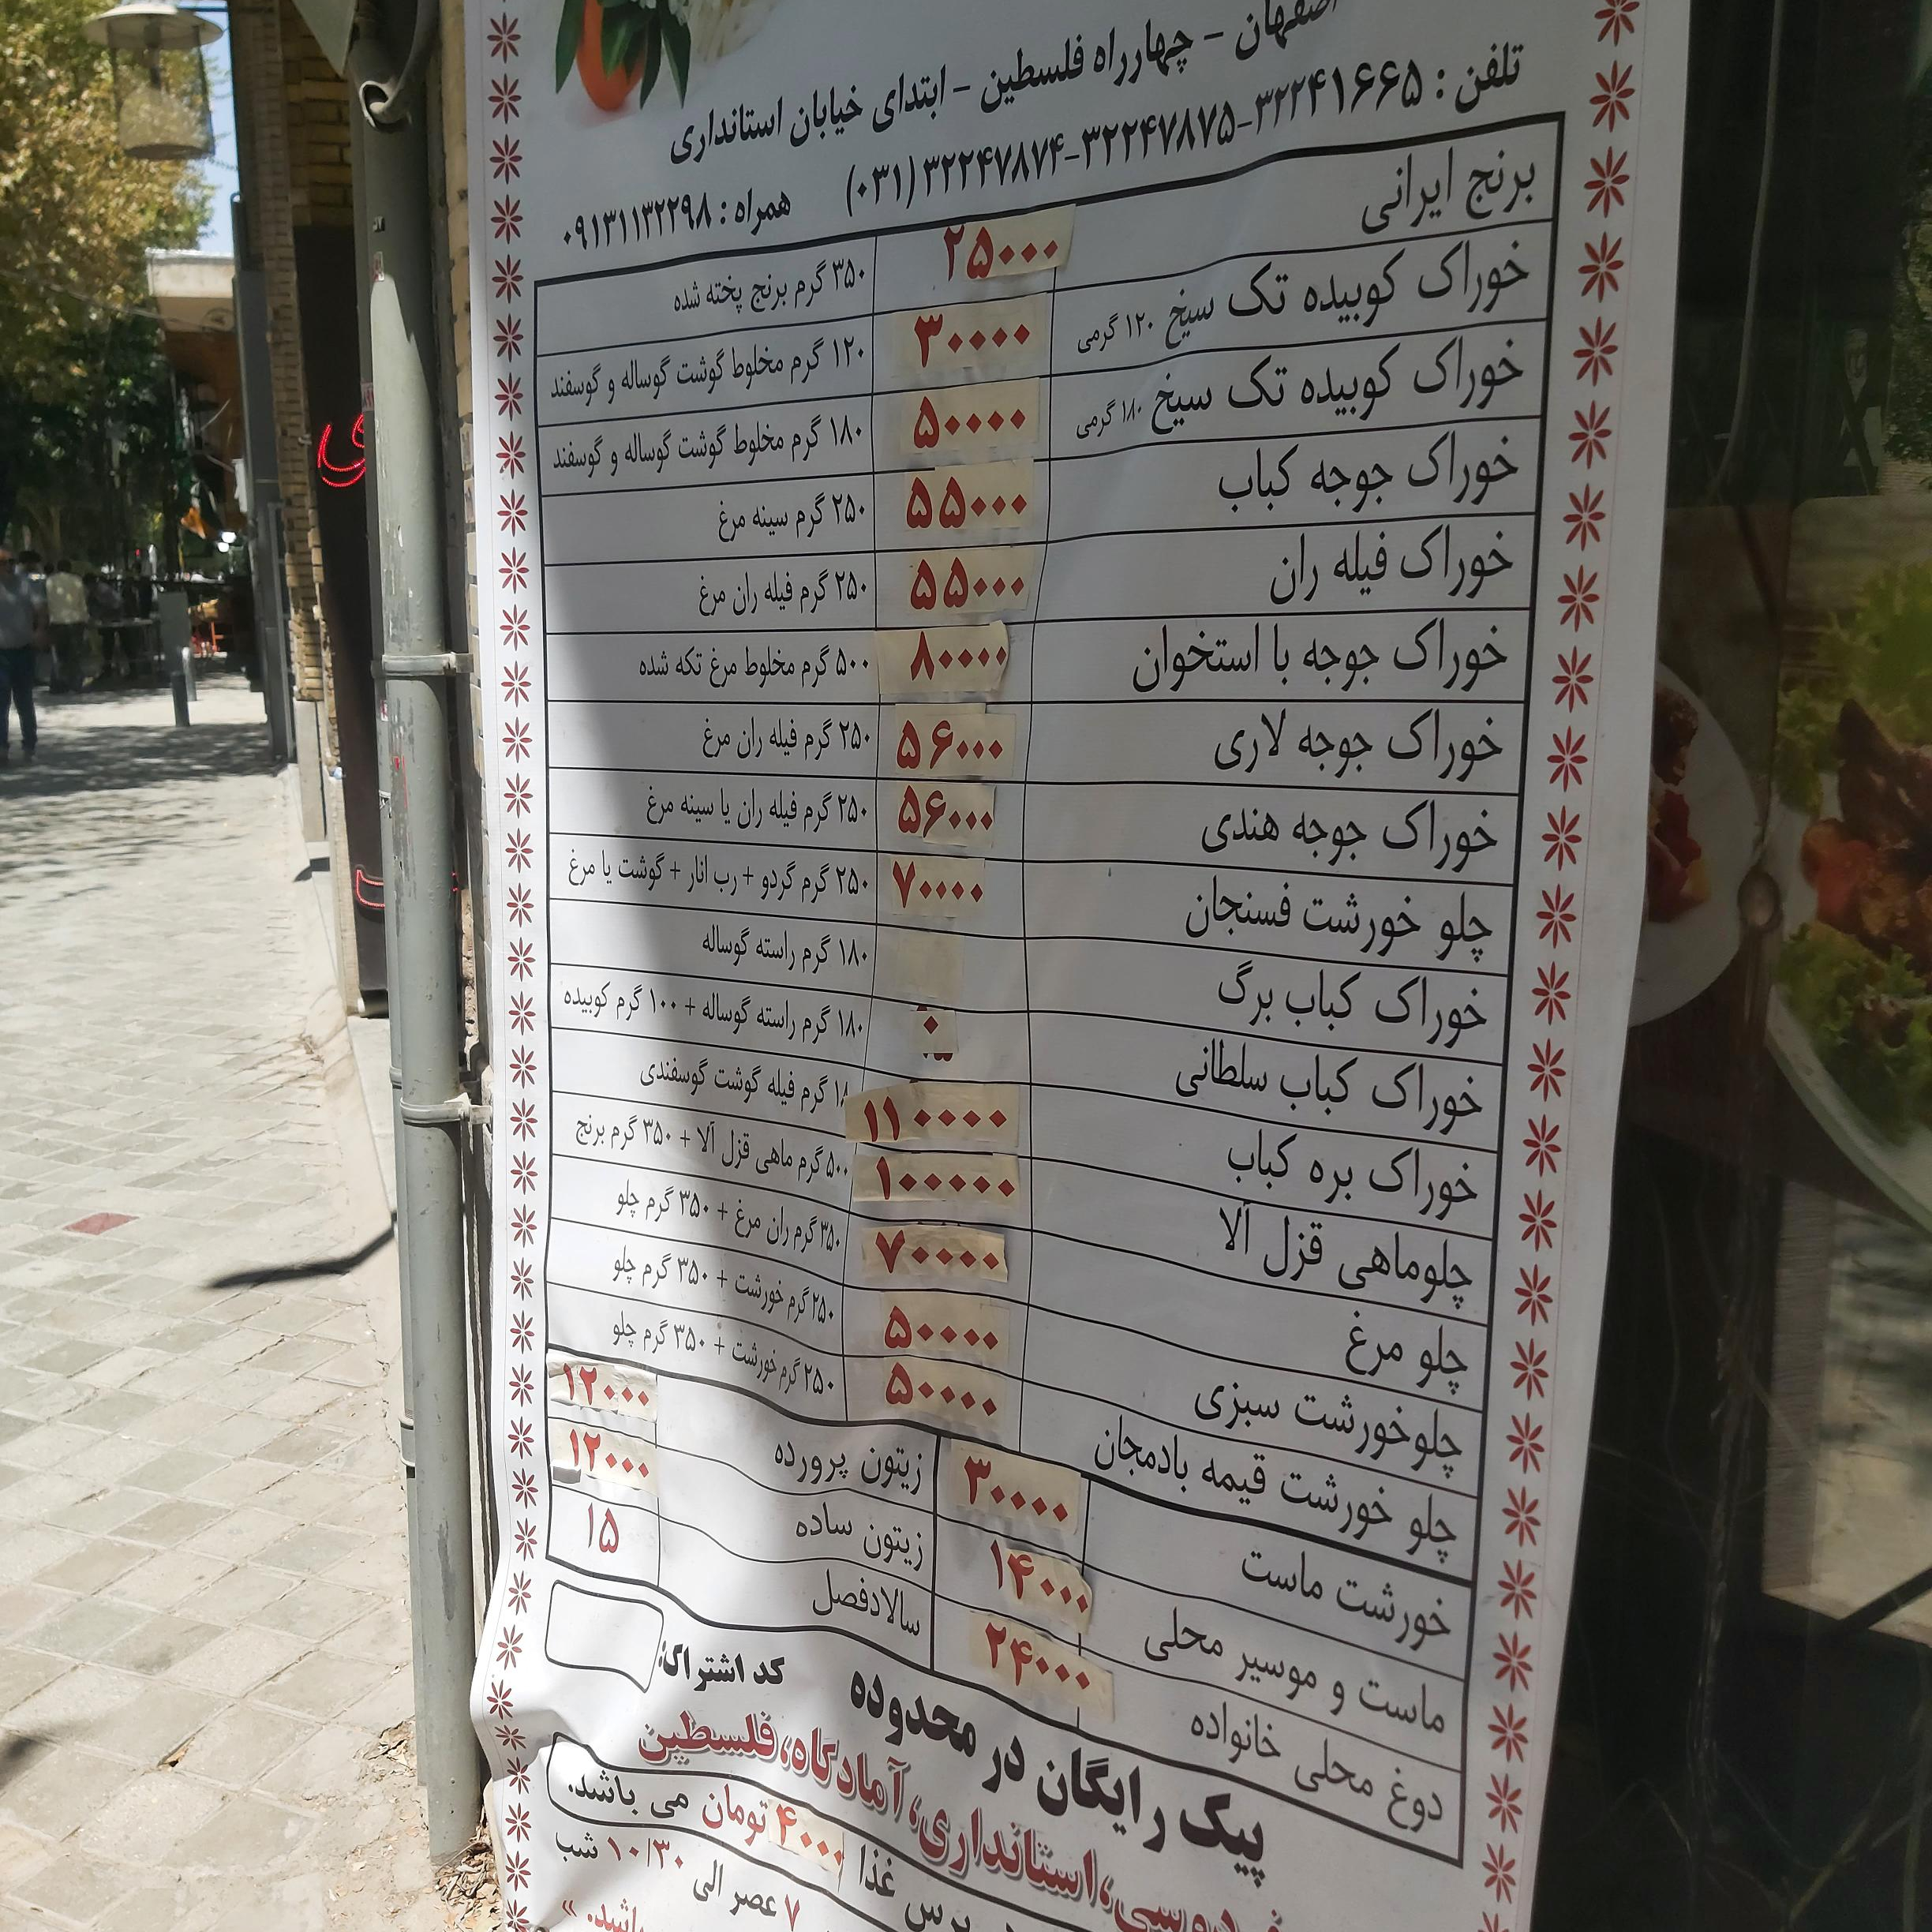 اصفهان - چهارراه فلسطین - ابتدای خیابان استانداری
تلفن : ۳۲۲۴۱۶۶۵-۳۲۲۴۷۸۷۵-۳۲۲۴۷۸۷۴(۰۳۱)
همراه : ۰۹۱۳۱۱۳۲۲۹۸
برنج ایرانی ۲۵۰۰۰ ۳۵۰ گرم برنج پخته شده
خوراک کوبیده تک سیخ ۱۲۰ گرمی ۳۰۰۰۰ ۱۲۰ گرم مخلوط گوشت گوساله و گوسفند
خوراک کوبیده تک سیخ ۱۸۰ گرمی ۵۰۰۰۰ ۱۸۰ گرم مخلوط گوشت گوساله و گوسفند
خوراک جوجه کباب ۵۵۰۰۰ ۲۵۰ گرم سینه مرغ
خوراک فیله ران ۵۵۰۰۰ ۲۵۰ گرم فیله ران مرغ
خوراک جوجه با استخوان ۸۰۰۰۰ ۵۰۰ گرم مخلوط مرغ تکه شده
خوراک جوجه لاری ۵۶۰۰۰ ۲۵۰ گرم فیله ران مرغ
خوراک جوجه هندی ۵۶۰۰۰ ۲۵۰ گرم فیله ران یا سینه مرغ
چلو خورشت فسنجان ۷۰۰۰۰ ۲۵۰ گرم گردو + رب انار + گوشت یا مرغ
خوراک کباب برگ ۱۸۰ گرم راسته گوساله
خوراک کباب سلطانی ۱۸۰ گرم راسته گوساله + ۱۰۰ گرم کوبیده
خوراک بره کباب ۱۱۰۰۰۰ گرم فیله گوشت گوسفندی
چلوماهی قزل آلا ۱۰۰۰۰۰ ۵۰۰ گرم ماهی قزل آلا + ۳۵۰ گرم برنج
چلو مرغ ۷۰۰۰۰ ۳۵۰ گرم ران مرغ + ۳۵۰ گرم چلو
چلوخورشت سبزی ۵۰۰۰۰ ۲۵۰ گرم خورشت + ۳۵۰ گرم چلو
چلو خورشت قیمه بادمجان ۵۰۰۰۰ ۲۵۰ گرم خورشت + ۳۵۰ گرم چلو
خورشت ماست ۳۰۰۰۰ زیتون پرورده ۱۲۰۰۰
ماست و موسیر محلی ۱۴۰۰۰ زیتون ساده ۱۲۰۰۰
دوغ محلی خانواده ۲۴۰۰۰ سالادفصل ۱۵
کد اشتراک:
پیک رایگان در محدوده
فردوسی، استانداری، آمادگاه، فلسطین
پرس غذا ۴۰۰۰ تومان می باشد.
۷ عصر الی ۱۰/۳۰ شب
باشد. »